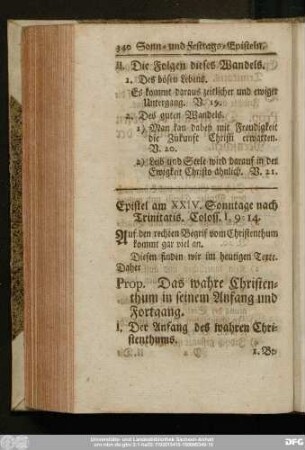 340 Sonn- und Festtags-Episteln.
II. Die Folgen dieses Wandels.
1. Des bösen Lebens.
Es kommt daraus zeitlicher und ewiger
Untergang. V. 19.
2. Des guten Wandels.
1) Man kan dabey mit Freudigkeit
die Zukunft Christi erwarten.
V. 20.
2) Leib und Seele wird darauf in der
Ewigkeit Christo ähnlich. V. 21.
Epistel am XXIV. Sonntage nach
Trinitatis. Coloss. I, 9-14.
Auf den rechten Begrif vom Christenthum
kommt gar viel an.
Diesen finden wir im heutigen Texte.
Daher
Prop. Das wahre Christen-
thum in seinem Anfang und
Fortgang.
I. Der Anfang des wahren Chri-
stenthums.
1. Be-
Universitäts- und Landesbibliothek Sachsen-Anhalt
DFG